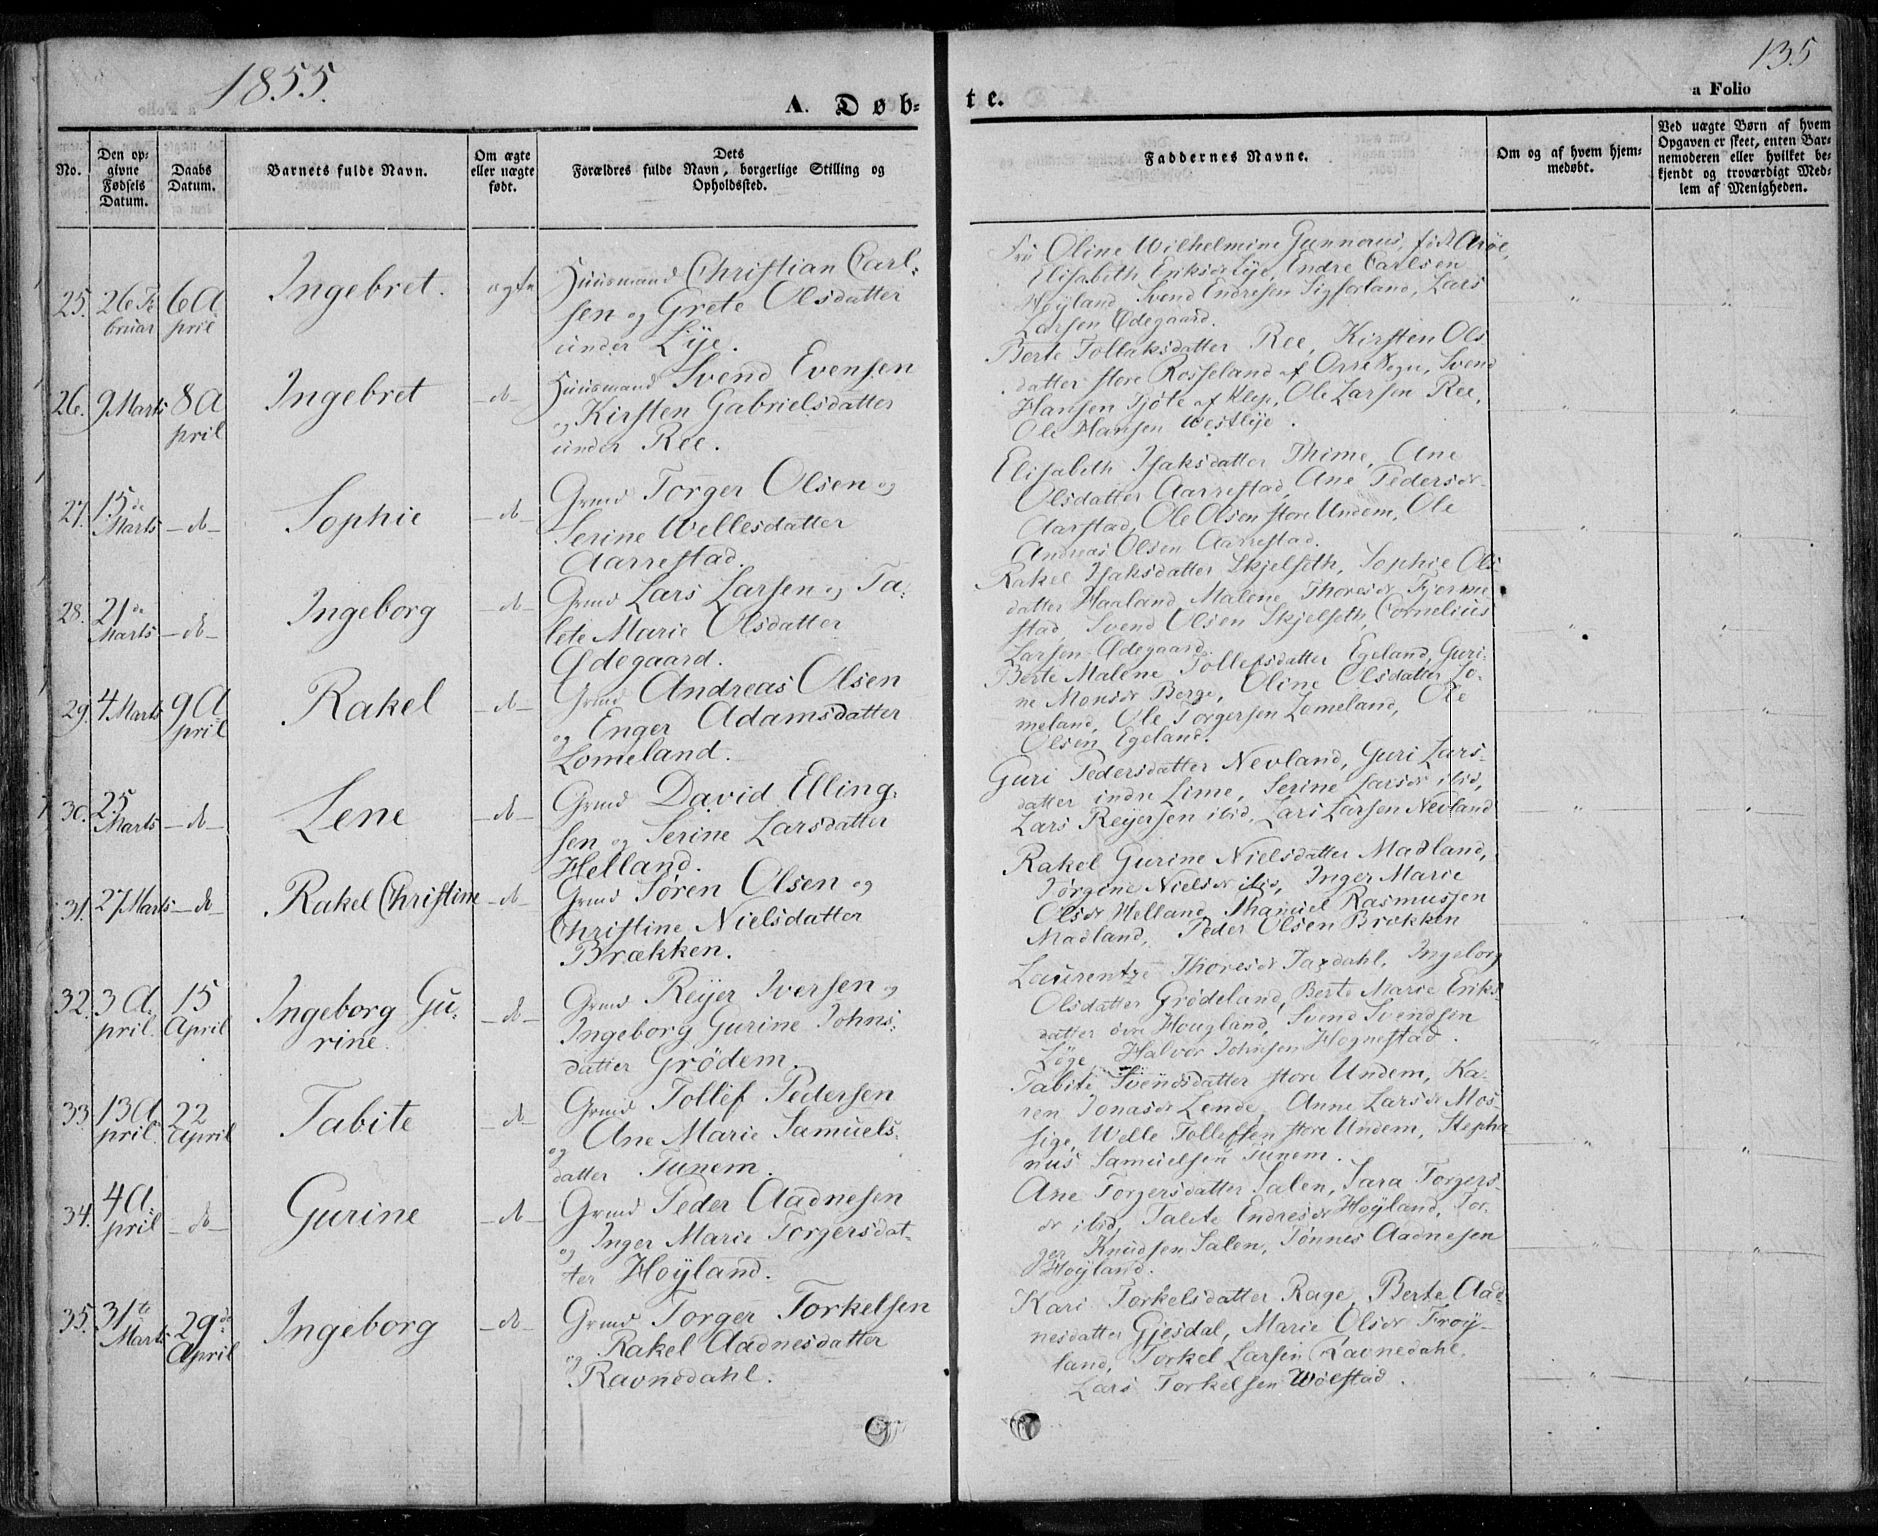 1855.
135
A. Døb-
te.
a Folio
No.
Den op-
givne
Fødsels
Datum.
Daabs
Datum.
Barnets fulde Navn.
Om ægte
eller uægte
født.
Dets
Forældres fulde Navn, borgerlige Stilling og
Opholdssted.
Faddernes Navne.
Om og af hvem hjem-
medøbt.
Ved uægte Børn af hvem
Opgaven er skeet, enten Bar-
nemoderen eller hvilket be-
kjendt og troværdigt Med-
lem af Menigheden.
25. 26 Fe
bruar
6 A
pril
Ingebret.
ægte
Huusmand Christian Carl-
sen og Grete Olsdatter
under Lye.
Fru Oline Wilhelmine Gunnerus, født Arøe,
Elisabeth Eriksdr Lye, Endre Carlsen
Høyland, Svend Endresen Sigforland, Lars
Larsen Ødegaard.
26. 9 Marts 8 A
pril
Ingebret
-do-
Huusmand Svend Evensen
og Kirsten Gabrielsdatter
under Ree.
Berte Tollaksdatter Ree, Kirsten Ols
datter store Rosseland af Orre Sogn, Svend
Hansen Tjøte af Klep, Ole Larsen Ree,
Ole Hansen Westlye.
27. 15de
Marts -do-
Sophie
-do-
Grmd Torger Olsen og
Serine Wellesdatter
Aarrestad.
Elisabeth Isaksdatter Thime, Ane
Olsdatter Aarrestad, Ane Pedersdr
Aarstad, Ole Olsen store Undem, Ole
Andreas Olsen Aarrestad.
28. 21de
Marts -do-
Ingeborg
-do-
Grmd Lars Larsen og Ta-
lete Marie Olsdatter
Ødegaard.
Rakel Isaksdatter Skjelseth, Sophie Ols
datter Haaland, Malene Thoresdr Fjerme
stad, Svend Olsen Skjelseth, Cornelius
Larsen Ødegaard.
29. 4 Marts 9 A
pril
Rakel
-do-
Grmd Andreas Olsen
og Enger Adamsdatter
Lomeland.
Berte Malene Tollefsdatter Egeland, Guri-
ne Monsdr Berge, Oline Olsdatter Lo-
meland, Ole Torgersen Lomeland, Ole
Olsen Egeland.
30. 25
Marts -do-
Lene
-do-
Grmd David Elling-
sen og Serine Larsdatter
Helland.
Guri Pedersdatter Nevland, Guri Lars-
datter indre Lime, Serine Larsdr ibid,
Lars Reyersen ibid, Lars Larsen Nevland
31. 27 Marts -do-
Rakel Christine
-do-
Grmd Søren Olsen og
Christine Nielsdatter
Brækken.
Rakel Gurine Nielsdatter Madland,
Jørgine Nielsdr ibid, Inger Marie
Olsdr Helland, Thaniel Rasmussen
Madland, Peder Olsen Brækken
32. 3 A-
pril.
15
April
Ingeborg Gu-
rine.
-do-
Grmd Reyer Iversen og
Ingeborg Gurine Johns-
datter Grødem.
Laurentze Thoresdr Taxdahl, Ingeborg
Olsdatter Grødeland, Berte Marie Eriks
datter øvre Hougland, Svend Svendsen
Løge, Halvor Johnsen Hognestad.
33. 13 A
pril.
22
April
Tabite
-do-
Grmd Tollef Pedersen
og Ane Marie Samuels-
datter Tunem.
Tabite Svendsdatter store Undem, Ka-
ren Jonasdr Lende, Anne Larsdr Mos-
sige, Welle Tollefsen store Undem, Stepha
nus Samuelsen Tunem.
34. 4 A-
pril -do-
Gurine
-do-
Grmd Peder Aadnesen
og Inger Marie Torgersdat-
ter Høyland.
Ane Torgersdatter Salen, Sara Torgers-
dr ibid, Talete Endresdr Høyland, Tor-
ger Knudsen Salen, Tønnes Aadnesen
Høyland.
35. 31te
Marts
29de
April
Ingeborg
-do-
Grmd Torger Torkelsen
og Rakel Aadnesdatter
Ravnedahl.
Kari Torkelsdatter Rage, Berte Aad-
nesdatter Gjesdal, Marie Olsdr Frøy-
land, Torkel Larsen Ravnedahl,
Lars Torkelsen Wølstad.